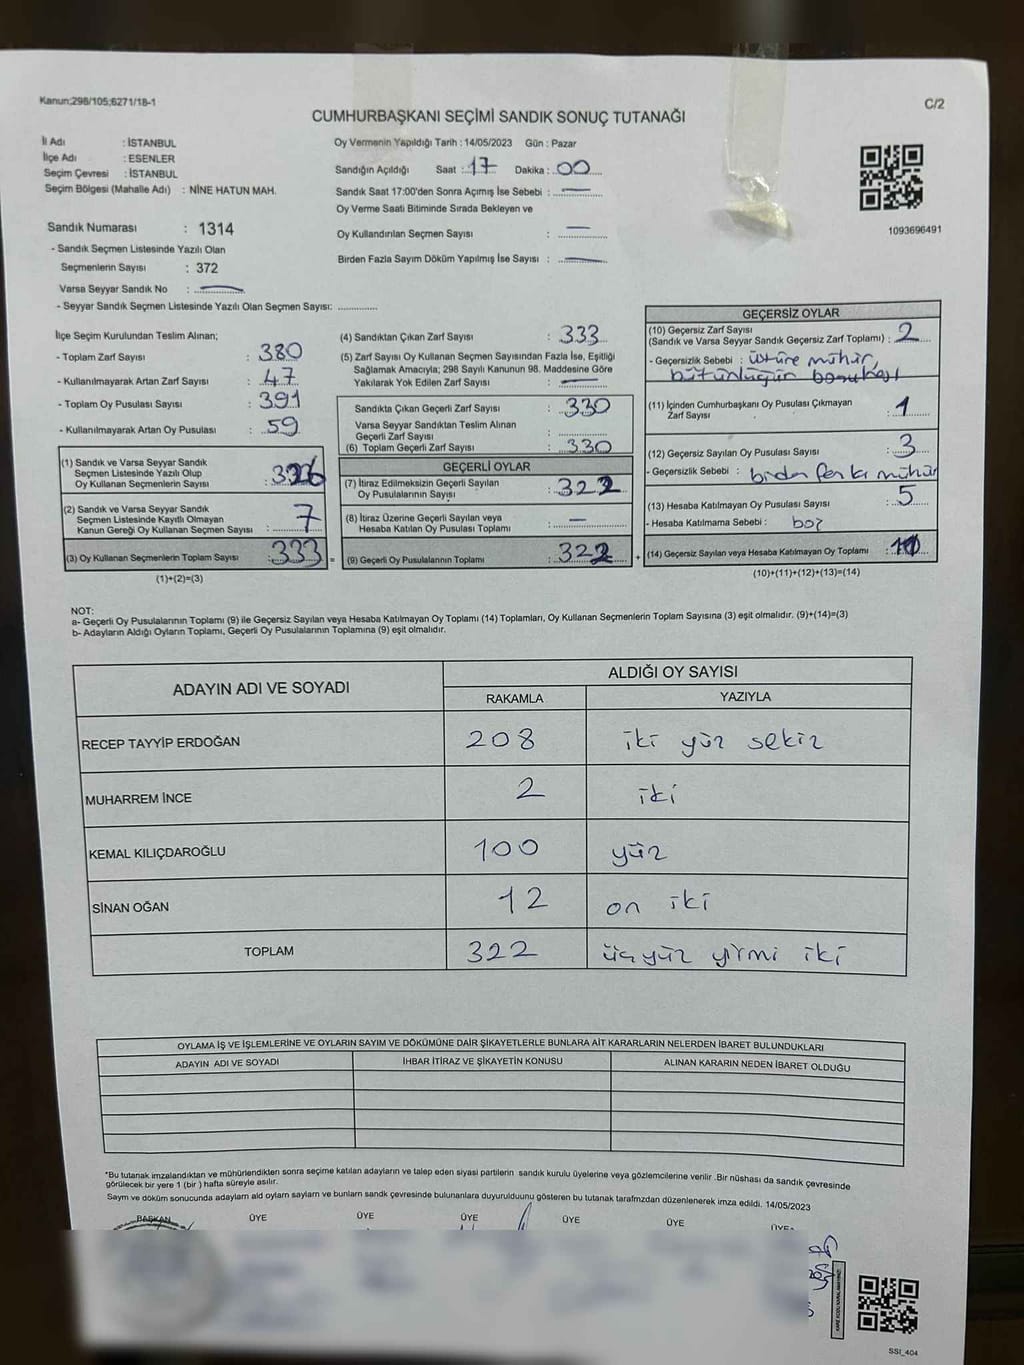 Kanun;298/105;6271/18-1
C/2
CUMHURBAŞKANI SEÇİMİ SANDIK SONUÇ TUTANAĞI
İl Adı : İSTANBUL
İlçe Adı : ESENLER
Seçim Çevresi : İSTANBUL
Seçim Bölgesi (Mahalle Adı) : NİNE HATUN MAH.
Oy Vermenin Yapıldığı Tarih : 14/05/2023 Gün : Pazar
Sandığın Açıldığı Saat : 17 Dakika : 00
Sandık Saat 17:00'den Sonra Açımış İse Sebebi :
Oy Verme Saati Bitiminde Sırada Bekleyen ve
Oy Kullandırılan Seçmen Sayısı :
Birden Fazla Sayım Döküm Yapılmış İse Sayısı :
1093696491
Sandık Numarası : 1314
- Sandık Seçmen Listesinde Yazılı Olan
Seçmenlerin Sayısı : 372
Varsa Seyyar Sandık No :
- Seyyar Sandık Seçmen Listesinde Yazılı Olan Seçmen Sayısı:
İlçe Seçim Kurulundan Teslim Alınan;
- Toplam Zarf Sayısı : 380
- Kullanılmayarak Artan Zarf Sayısı : 47
- Toplam Oy Pusulası Sayısı : 391
- Kullanılmayarak Artan Oy Pusulası : 59
(1) Sandık ve Varsa Seyyar Sandık
Seçmen Listesinde Yazılı Olup
Oy Kullanan Seçmenlerin Sayısı : 326
(2) Sandık ve Varsa Seyyar Sandık
Seçmen Listesinde Kayıtlı Olmayan
Kanun Gereği Oy Kullanan Seçmen Sayısı : 7
(3) Oy Kullanan Seçmenlerin Toplam Sayısı : 333 =
(1)+(2)=(3)
(4) Sandıktan Çıkan Zarf Sayısı : 333
(5) Zarf Sayısı Oy Kullanan Seçmen Sayısından Fazla İse, Eşitliği
Sağlamak Amacıyla; 298 Sayılı Kanunun 98. Maddesine Göre
Yakılarak Yok Edilen Zarf Sayısı :
Sandıkta Çıkan Geçerli Zarf Sayısı : 330
Varsa Seyyar Sandıktan Teslim Alınan
Geçerli Zarf Sayısı :
(6) Toplam Geçerli Zarf Sayısı : 330
GEÇERLİ OYLAR
(7) İtiraz Edilmeksizin Geçerli Sayılan
Oy Pusulalarının Sayısı : 322
(8) İtiraz Üzerine Geçerli Sayılan veya
Hesaba Katılan Oy Pusulası Toplamı :
(9) Geçerli Oy Pusulalarının Toplamı : 322 +
GEÇERSİZ OYLAR
(10) Geçersiz Zarf Sayısı
(Sandık ve Varsa Seyyar Sandık Geçersiz Zarf Toplamı) : 2
- Geçersizlik Sebebi : üstüne mühür,
bütünlüğün bozulması
(11) İçinden Cumhurbaşkanı Oy Pusulası Çıkmayan
Zarf Sayısı : 1
(12) Geçersiz Sayılan Oy Pusulası Sayısı : 3
- Geçersizlik Sebebi : birden fazla mühür
(13) Hesaba Katılmayan Oy Pusulası Sayısı : 5
- Hesaba Katılmama Sebebi : boş
(14) Geçersiz Sayılan veya Hesaba Katılmayan Oy Toplamı :
(10)+(11)+(12)+(13)=(14)
NOT:
a- Geçerli Oy Pusulalarının Toplamı (9) ile Geçersiz Sayılan veya Hesaba Katılmayan Oy Toplamı (14) Toplamları, Oy Kullanan Seçmenlerin Toplam Sayısına (3) eşit olmalıdır. (9)+(14)=(3)
b- Adayların Aldığı Oyların Toplamı, Geçerli Oy Pusulalarının Toplamına (9) eşit olmalıdır.
ADAYIN ADI VE SOYADI ALDIĞI OY SAYISI
RAKAMLA YAZIYLA
RECEP TAYYİP ERDOĞAN 208 iki yüz sekiz
MUHARREM İNCE 2 iki
KEMAL KILIÇDAROĞLU 100 yüz
SİNAN OĞAN 12 on iki
TOPLAM 322 üçyüz yirmi iki
OYLAMA İŞ VE İŞLEMLERİNE VE OYLARIN SAYIM VE DÖKÜMÜNE DAİR ŞİKAYETLERLE BUNLARA AİT KARARLARIN NELERDEN İBARET BULUNDUKLARI
ADAYIN ADI VE SOYADI İHBAR İTİRAZ VE ŞİKAYETİN KONUSU ALINAN KARARIN NEDEN İBARET OLDUĞU
*Bu tutanak imzalandıktan ve mühürlendikten sonra seçime katılan adayların ve talep eden siyasi partilerin sandık kurulu üyelerine veya gözlemcilerine verilir .Bir nüshası da sandık çevresinde
görülecek bir yere 1 (bir ) hafta süreyle asılır.
Sayım ve döküm sonucunda adayların ald oyların sayları ve bunların sandk çevresinde bulunanlara duyurulduunu gösteren bu tutanak tarafmzdan düzenlenerek imza edildi. 14/05/2023
BAŞKAN ÜYE ÜYE ÜYE ÜYE ÜYE ÜYE
SSI_404